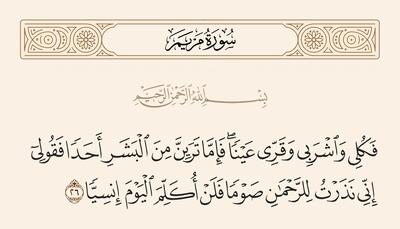 سُورَةُ مَرْيَمَ
بِسْمِ اللَّهِ الرَّحْمَٰنِ الرَّحِيمِ
فَكُلِي وَاشْرَبِي وَقَرِّي عَيْنًا ۖ فَإِمَّا تَرَيِنَّ مِنَ الْبَشَرِ أَحَدًا فَقُولِي
إِنِّي نَذَرْتُ لِلرَّحْمَٰنِ صَوْمًا فَلَنْ أُكَلِّمَ الْيَوْمَ إِنسِيًّا ٢٦